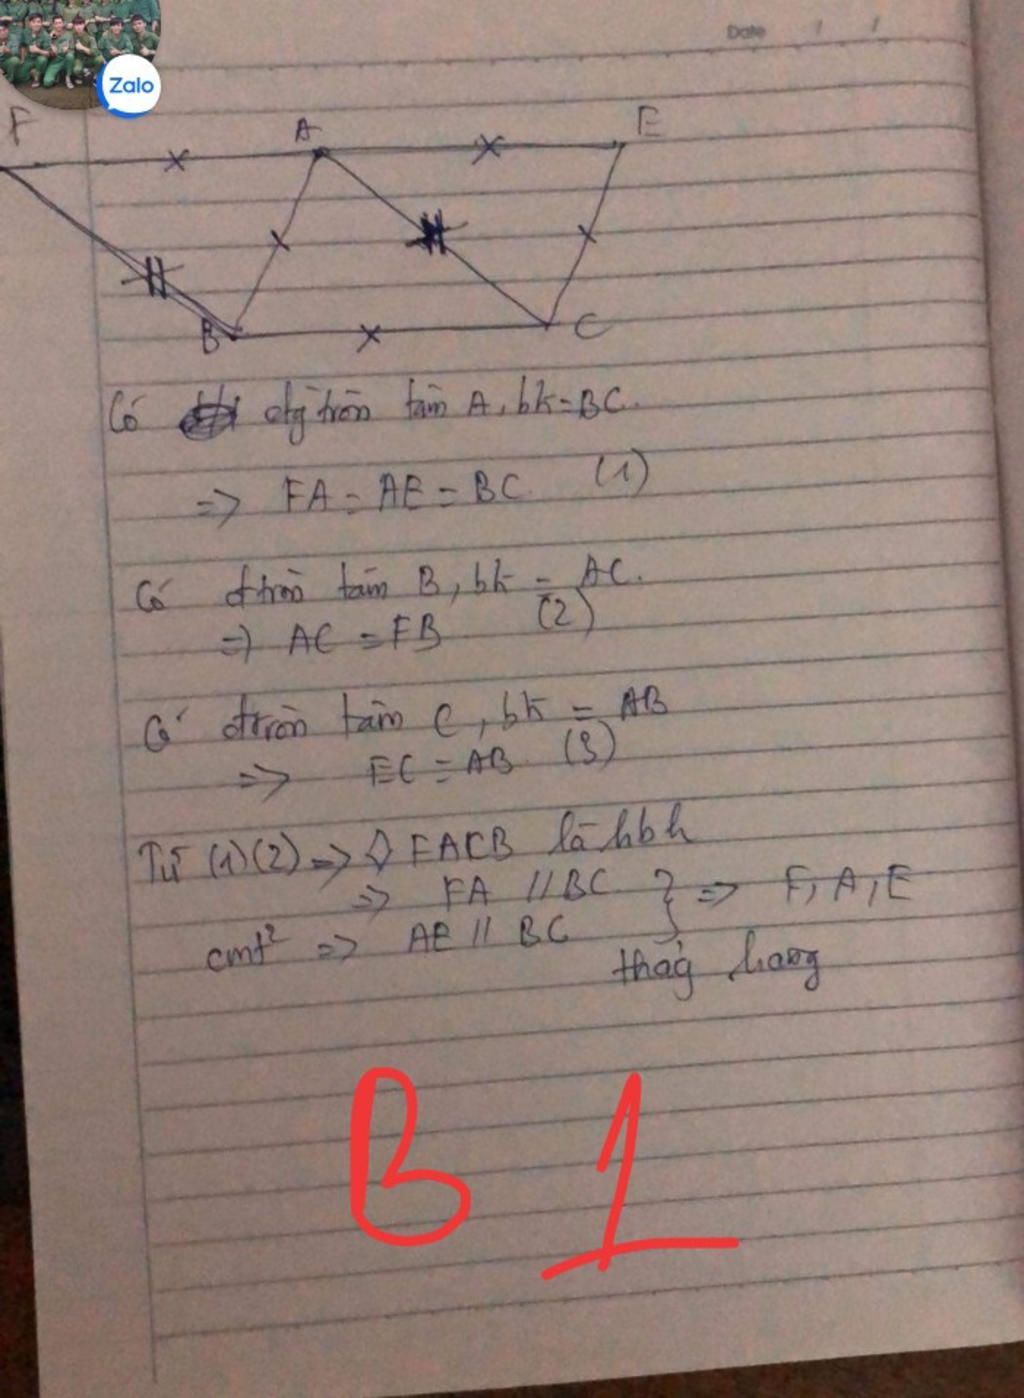 Date / /
Zalo
F A E
B C
Có đg tròn tâm A, bk=BC.
=> FA = AE = BC (1)
Có đtròn tâm B, bk = AC.
=> AC = FB (2)
Có đtròn tâm C, bk = AB
=> EC = AB (3)
Từ (1)(2) => ◊ FACB là hbh
=> FA // BC } => F, A, E
cmt² => AE // BC
thảg hàng
B 1